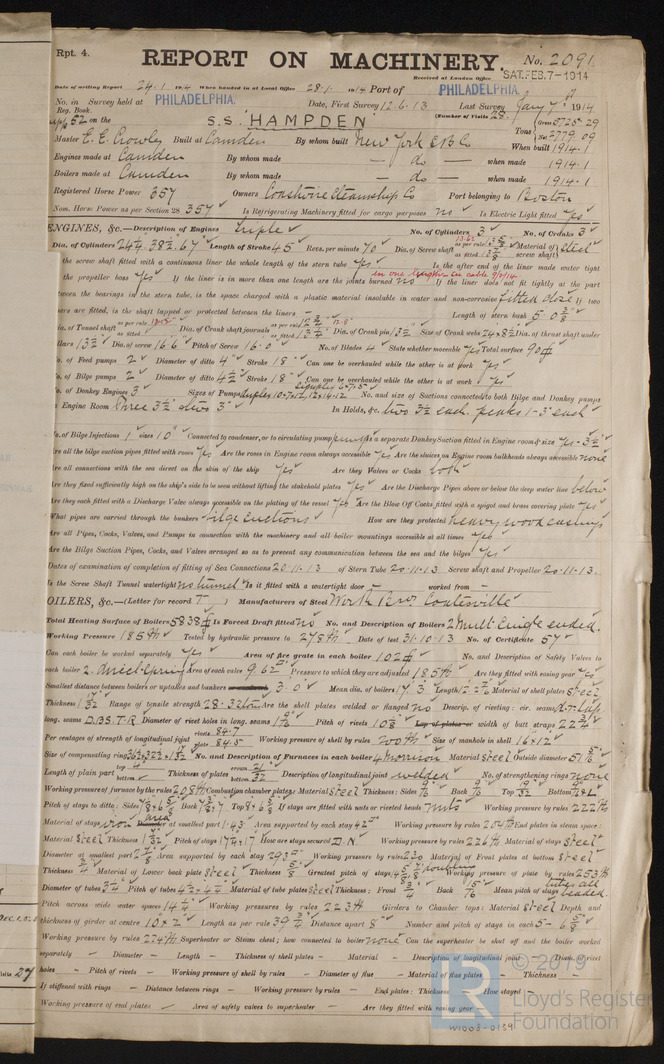 Rpt. 4.
REPORT ON MACHINERY. No. 2091
Received at London Office SAT. FEB. 7-1914
Date of writing Report 24.1.1914 When handed in at Local Office 28.1.1914 Port of PHILADELPHIA.
No. in Survey held at PHILADELPHIA. Date, First Survey 12.6.13 Last Survey Jany 7th 1914
Reg. Book. (Number of Visits 28.
52 on the S.S. "HAMPDEN" Tons Gross 3725.29 Net 2779.09
Master E. E. Crowley Built at Camden By whom built New York S.B.Co When built 1914-1
Engines made at Camden By whom made — do — when made 1914-1
Boilers made at Camden By whom made — do — when made 1914-1
Registered Horse Power 357 Owners Coastwise Steamship Co Port belonging to Boston
Nom. Horse Power as per Section 28 357 Is Refrigerating Machinery fitted for cargo purposes no Is Electric Light fitted yes
ENGINES, &c.—Description of Engines triple No. of Cylinders 3 No. of Cranks 3
Dia. of Cylinders 24". 38½". 67" Length of Stroke 45 Revs. per minute 70 Dia. of Screw shaft as per rule as fitted Material of screw shaft steel
the screw shaft fitted with a continuous liner the whole length of the stern tube yes Is the after end of the liner made water tight
the propeller boss yes If the liner is in more than one length are the joints burned no If the liner does not fit tightly at the part
in one length
between the bearings in the stern tube, is the space charged with a plastic material insoluble in water and non-corrosive fitted close If two
liners are fitted, is the shaft lapped or protected between the liners – Length of stern bush 5-0⅜
Dia. of Tunnel shaft as per rule as fitted Dia. of Crank shaft journals as per rule as fitted Dia. of Crank pin 13½ Size of Crank webs 24×8½ Dia. of thrust shaft under
collars 13½ Dia. of screw 16.6 Pitch of Screw 16-0 No. of Blades 4 State whether moveable yes Total surface 90
No. of Feed pumps 2 Diameter of ditto 4" Stroke 18" Can one be overhauled while the other is at work yes
No. of Bilge pumps 2 Diameter of ditto 4½ Stroke 18" Can one be overhauled while the other is at work yes
No. of Donkey Engines 3 Sizes of Pumps No. and size of Suctions connected to both Bilge and Donkey pumps
In Engine Room three 3½ & two 3" In Holds, &c. two 3½ each. peaks 1-3" each
No. of Bilge Injections 1 sizes 10" Connected to condenser, or to circulating pump pump Is a separate Donkey Suction fitted in Engine room & size yes-3½
Are all the bilge suction pipes fitted with roses yes Are the roses in Engine room always accessible yes Are the sluices on Engine room bulkheads always accessible none
Are all connections with the sea direct on the skin of the ship yes Are they Valves or Cocks both
Are they fixed sufficiently high on the ship's side to be seen without lifting the stokehold plates yes Are the Discharge Pipes above or below the deep water line below
Are they each fitted with a Discharge Valve always accessible on the plating of the vessel yes Are the Blow Off Cocks fitted with a spigot and brass covering plate yes
What pipes are carried through the bunkers bilge suctions How are they protected heavy wood casings
Are all Pipes, Cocks, Valves, and Pumps in connection with the machinery and all boiler mountings accessible at all times yes
Are the Bilge Suction Pipes, Cocks, and Valves arranged so as to prevent any communication between the sea and the bilges yes
Dates of examination of completion of fitting of Sea Connections 20-11-13 of Stern Tube 20-11-13 Screw shaft and Propeller 20-11-13.
Is the Screw Shaft Tunnel watertight no tunnel Is it fitted with a watertight door — worked from —
BOILERS, &c.—(Letter for record T ) Manufacturers of Steel Worth Bros. Coatesville
Total Heating Surface of Boilers 5838 Is Forced Draft fitted no No. and Description of Boilers 2 Mult. Single ended.
Working Pressure 185 lb Tested by hydraulic pressure to 278 lb Date of test 31-10-13 No. of Certificate 57
Can each boiler be worked separately yes Area of fire grate in each boiler 102 No. and Description of Safety Valves to
each boiler 2. direct spring Area of each valve 9.62 Pressure to which they are adjusted 185 lb Are they fitted with easing gear yes
Smallest distance between boilers or uptakes and bunkers 3'.0" Mean dia. of boilers 17.3 Length Material of shell plates steel
Thickness Range of tensile strength 28-32 tons Are the shell plates welded or flanged no Descrip. of riveting: cir. seams
long. seams D.B.S.T.R Diameter of rivet holes in long. seams Pitch of rivets 10⅞ Lap of plates or width of butt straps 22¾
Per centages of strength of longitudinal joint rivets 84.7 plate 84.5 Working pressure of shell by rules 200 lb Size of manhole in shell 16×12
Size of compensating ring No. and Description of Furnaces in each boiler 4 Morrison Material Steel Outside diameter
Length of plain part top bottom Thickness of plates crown bottom Description of longitudinal joint welded No. of strengthening rings none
Working pressure of furnace by the rules 208 lb Combustion chamber plates: Material steel Thickness: Sides Back Top Bottom
Pitch of stays to ditto: Sides Back Top If stays are fitted with nuts or riveted heads nuts Working pressure by rules 222 lb
Material of stays iron area at smallest part 1.43 Area supported by each stay 42 Working pressure by rules End plates in steam space:
Material Steel Thickness Pitch of stays 17¼×17 How are stays secured D.N. Working pressure by rules 226 lb Material of stays Steel
Diameter at smallest part Area supported by each stay 293 Working pressure by rules Material of Front plates at bottom steel
Thickness ¾ Material of Lower back plate Steel Thickness Greatest pitch of stays Working pressure of plate by rules 253 lb
Diameter of tubes 3¼ Pitch of tubes Material of tube plates Steel Thickness: Front Back Mean pitch of stays tubes all beaded.
Pitch across wide water spaces 14¼ Working pressures by rules 223 lb Girders to Chamber tops: Material Steel Depth and
thickness of girder at centre 10×2 Length as per rule 39¾ Distance apart 8" Number and pitch of stays in each
Working pressure by rules 224 lb Superheater or Steam chest; how connected to boiler none Can the superheater be shut off and the boiler worked
separately – Diameter – Length – Thickness of shell plates – Material – Description of longitudinal joint – Diam. of rivet
holes – Pitch of rivets – Working pressure of shell by rules – Diameter of flue – Material of flue plates – Thickness –
If stiffened with rings – Distance between rings – Working pressure by rules – End plates: Thickness – How stayed –
Working pressure of end plates – Area of safety valves to superheater – Are they fitted with easing gear –
© 2019
Lloyd's Register
Foundation
LR
W1003-0139